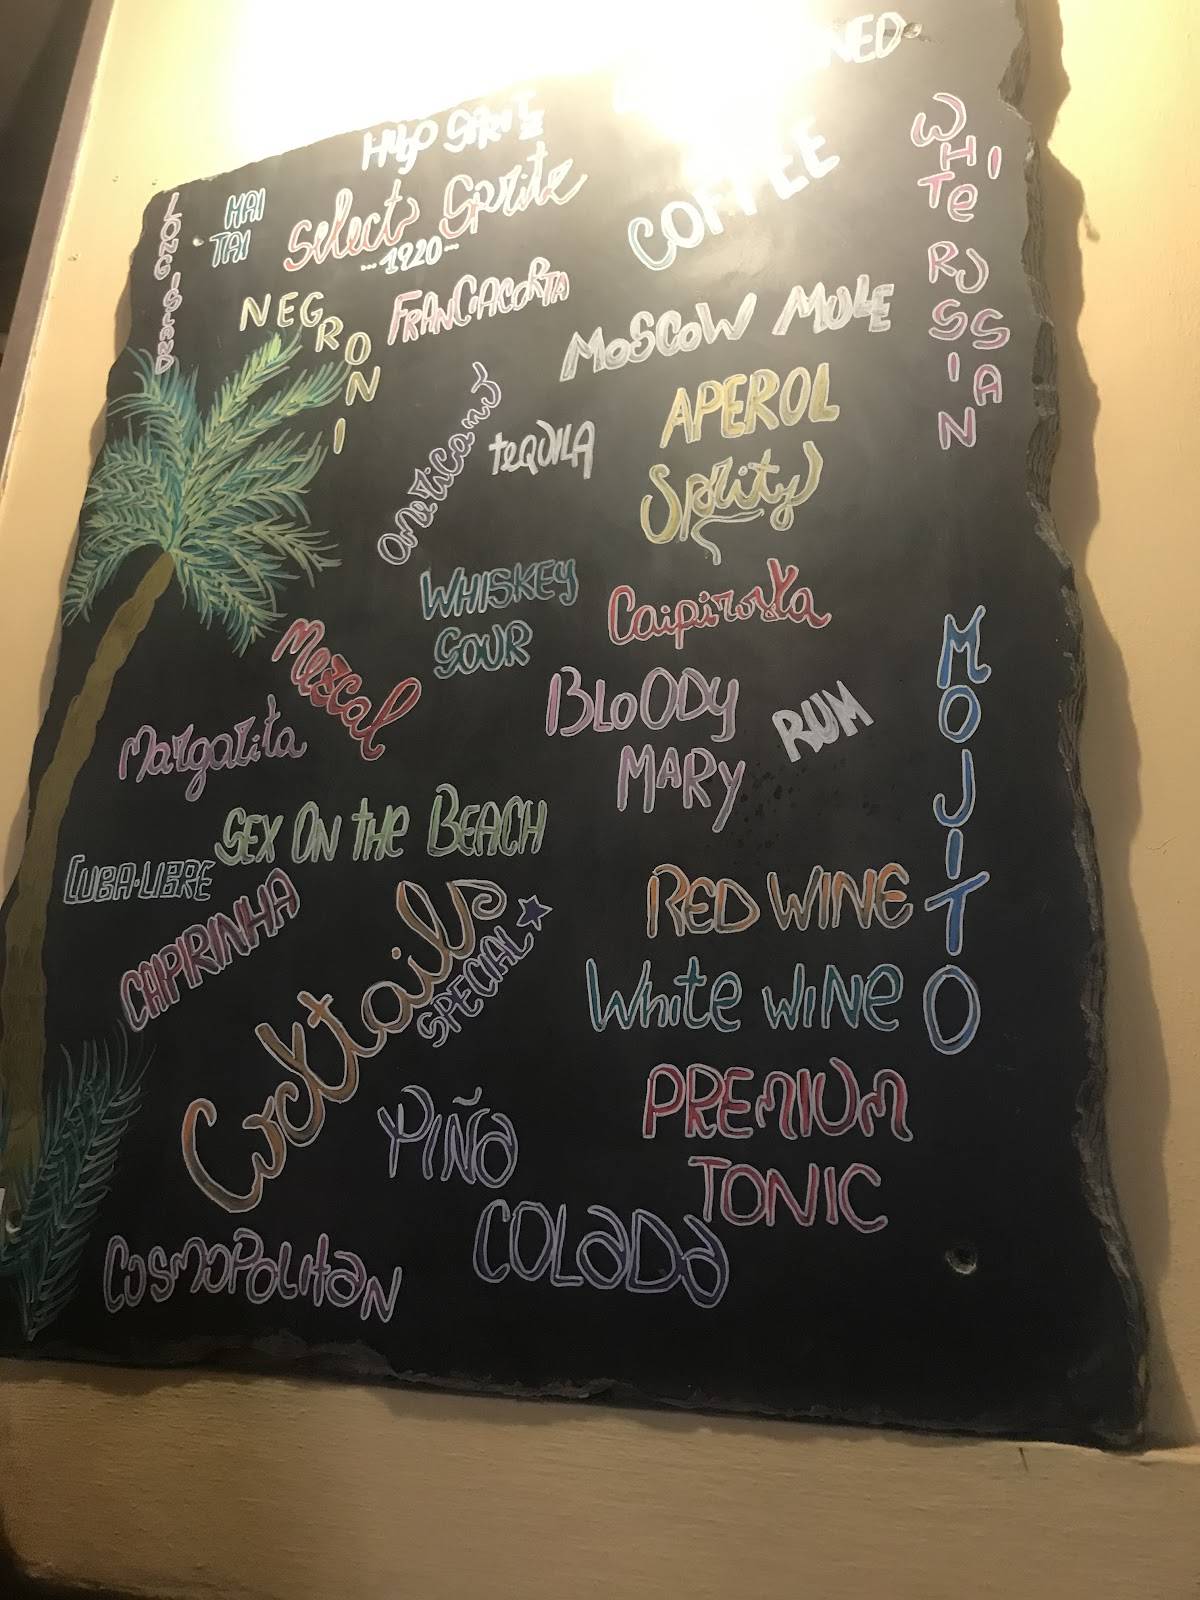 HUGO SPRITZ
LONG ISLAND
MAI
TAI
Select Spritz
...1920...
COFFEE
WHITE
RUSSIAN
NEGRONI
FRANCIACORTA
MOSCOW MULE
APEROL
Spritz
americano
tEQUILA
WHISKEY
SOUR
Caipiroska
Mezcal
BLOODY
MARY
RUM
MOJITO
Margarita
SEX ON the BEACH
CUBA-LIBRE
CAIPIRINHA
RED WINE
Cocktails
SPECIAL
White WINE
PREMIUM
TONIC
PIÑa
COLaDa
COSMOPOLItaN